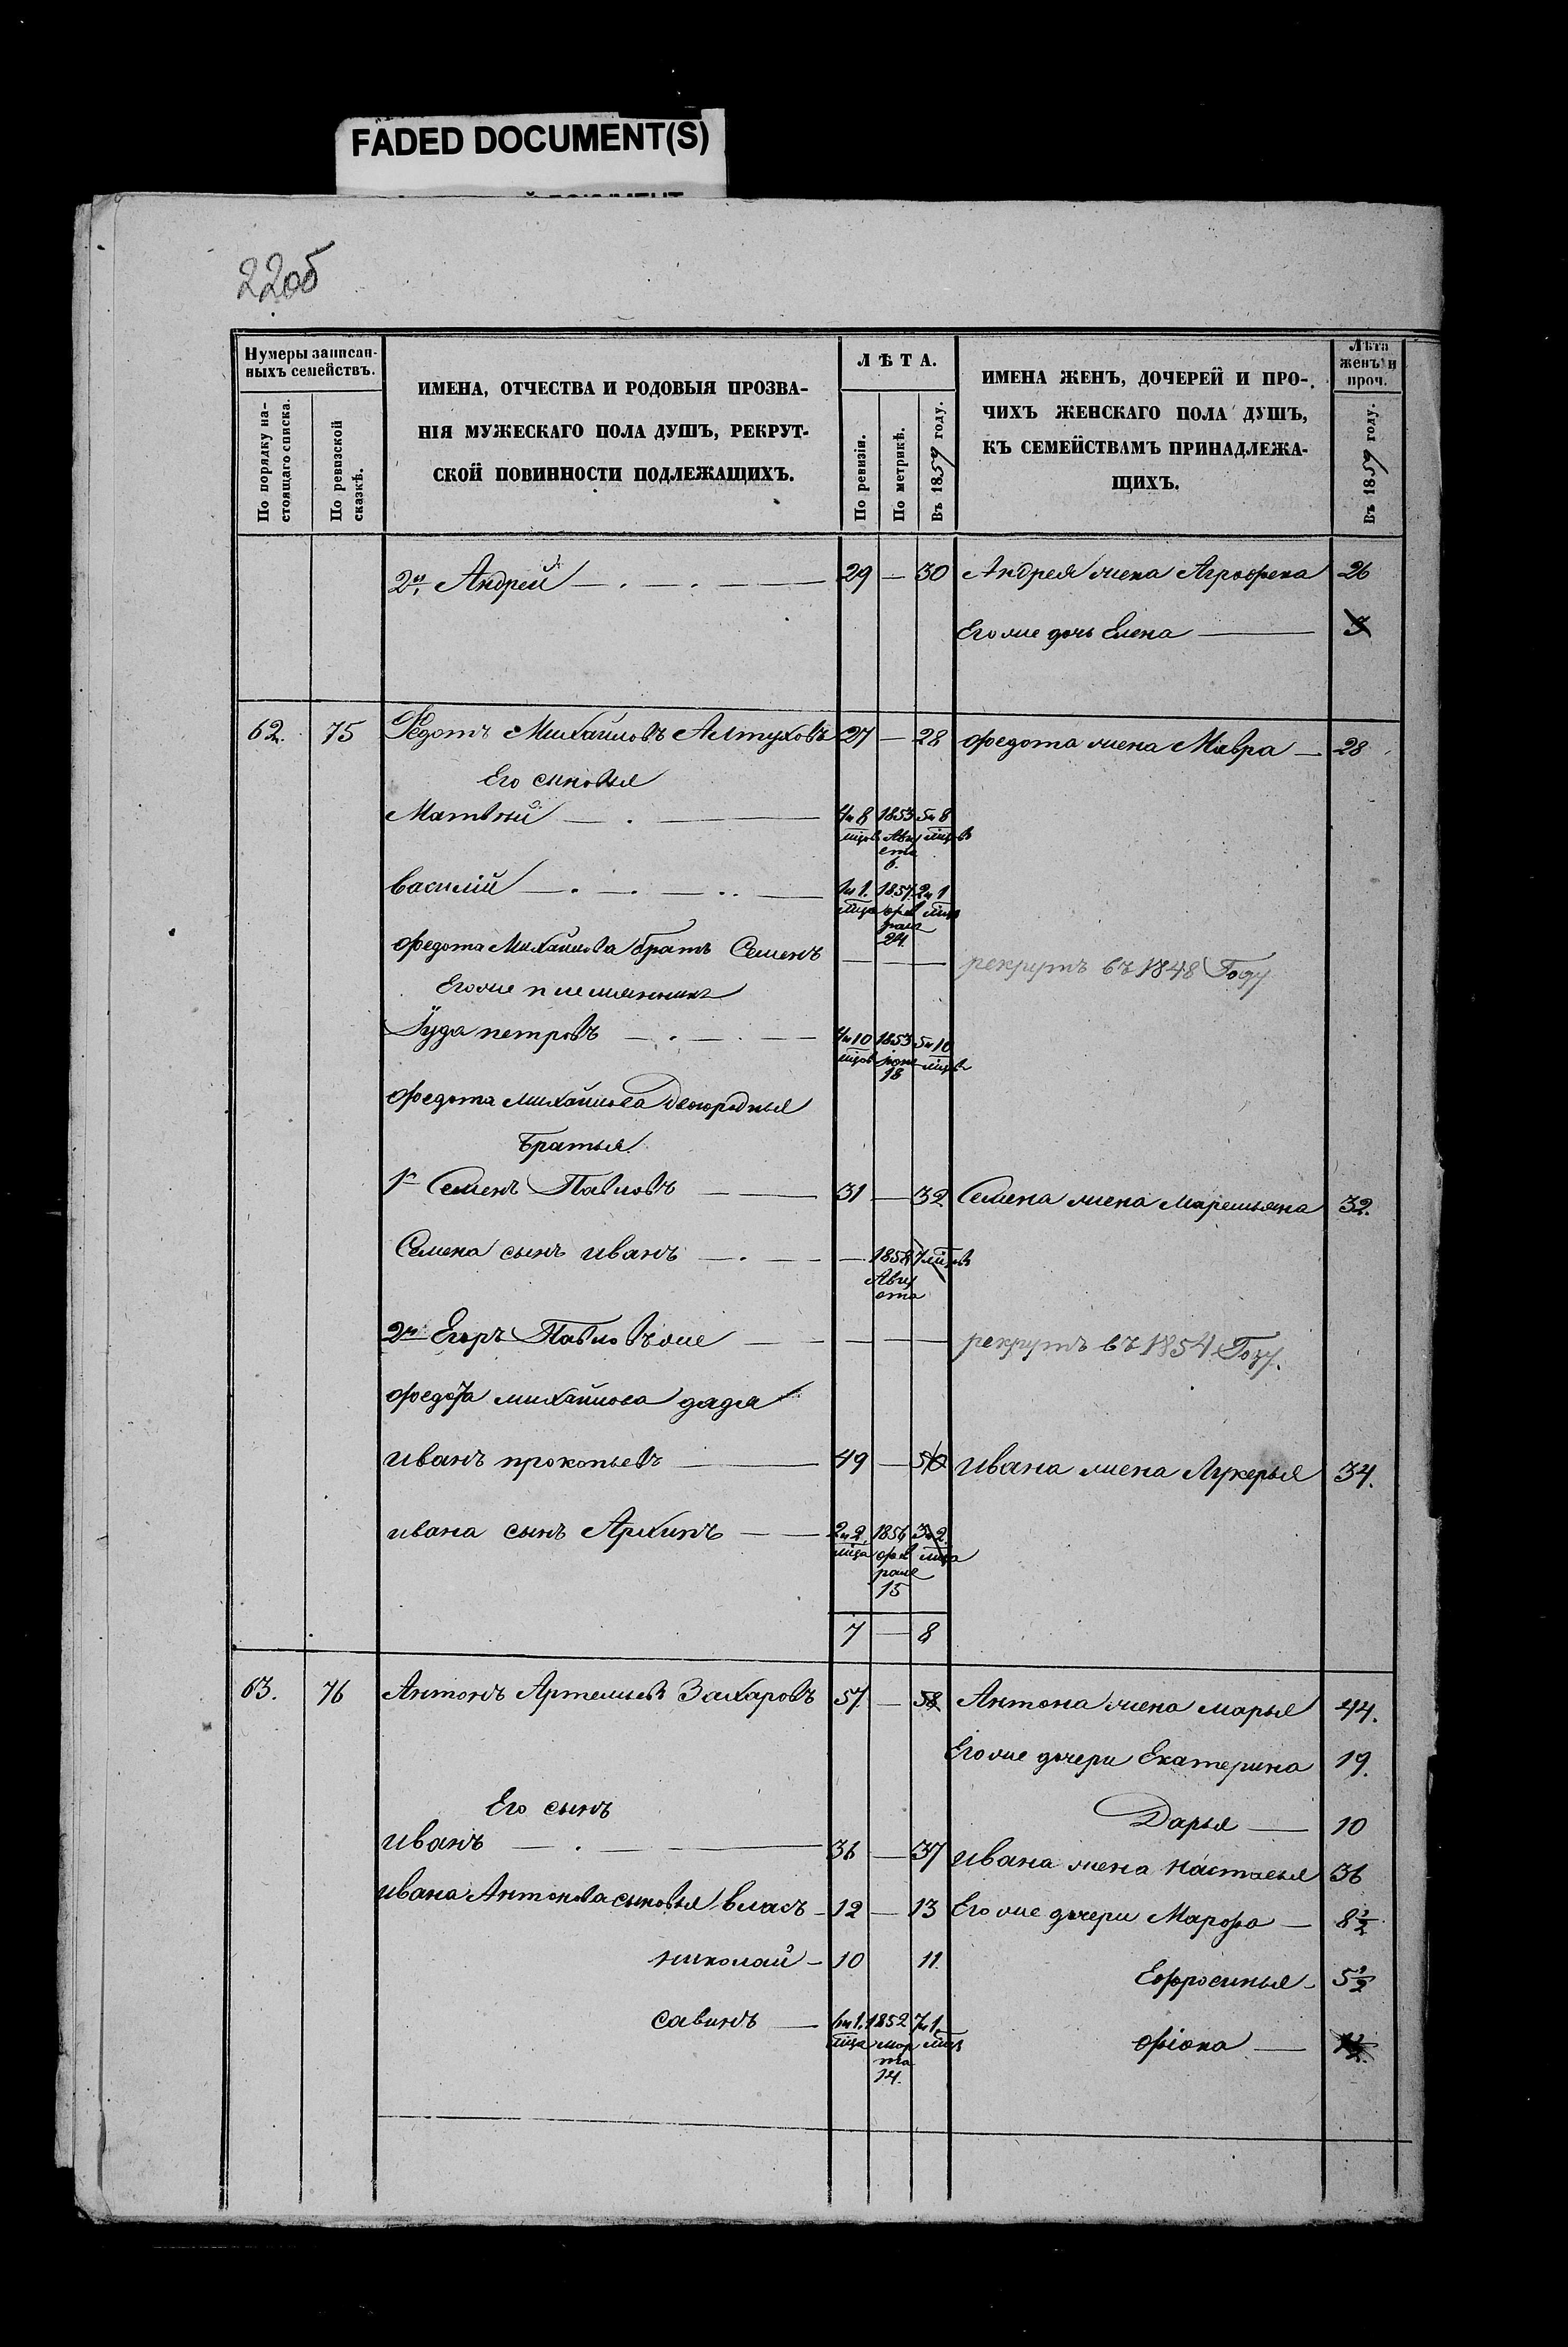 FADED DOCUMENT(S)
22об
Нумеры записан-
ныхъ семействъ.
По порядку на-
стоящаго списка.
По ревизской
сказкѣ.
ИМЕНА, ОТЧЕСТВА И РОДОВЫЯ ПРОЗВА-
НІЯ МУЖЕСКАГО ПОЛА ДУШЪ, РЕКРУТ-
СКОЙ ПОВИННОСТИ ПОДЛЕЖАЩИХЪ.
ЛѢТА.
По ревизіи.
По метрикѣ.
Въ 1859 году.
ИМЕНА ЖЕНЪ, ДОЧЕРЕЙ И ПРО-
ЧИХЪ ЖЕНСКАГО ПОЛА ДУШЪ,
КЪ СЕМЕЙСТВАМЪ ПРИНАДЛЕЖА-
ЩИХЪ.
Лѣта
женъ и
проч.
Въ 1859 году.
2й Андрей 29 — 30 Андрея жена Агрофена 26
Его же дочь Елена
62. 75 Федотъ Михайловъ Алтуховъ 27 — 28 Федота жена Мавра — 28
Его сыновья
Матвей 4 и 8 мцовъ 1853 Авгу ста 6. 5 и 8 мцовъ
Василій 1 и 1. мца 1857 фев раля 24. 2 и 1 мца
Федота Михайлова братъ Семенъ — рекрутъ въ 1848 Году
Его же племянникъ
Іуда петровъ 4 и 10 мцовъ 1853 іюня 18 5 и 10 мцовъ
Федота михайлова Двоюродныя
братья
1й Семенъ Павловъ 31 — 32 Семена жена Маремьяна 32.
Семена сынъ иванъ — 1858 Авгу ста 7 мцовъ
2й Егоръ Павловъ же — рекрутъ въ 1854 Году.
Федота михайлова дядя
иванъ прокопьевъ 49 — 50 ивана жена Лукерья 34.
ивана сынъ Архипъ 2 и 2. мца 1856 фев раля 15 3 и 2. мца
7 — 8
63. 76 Антонъ Артемьевъ Захаровъ 57 — 58 Антона жена марья 44.
Его же дочери Екатерина 19.
Его сынъ
Дарья — 10
иванъ 36 — 37 ивана жена настасья 36
ивана Антонова сыновья власъ — 12 — 13 Его же дочери Марфа — 8½
николай — 10 11.
Ефросинья — 5½
савинъ — 6 и 1. мца 1852 мар та 14. 7 и 1. мца
фіона —